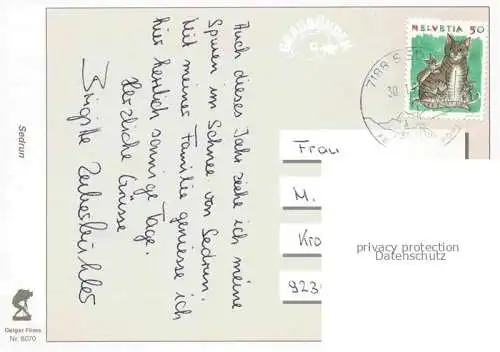 Auch dieses Jahr ziehe ich meine
Spuren im Schnee von Sedrun.
Mit meiner Familie geniesse ich
hier herrlich sonnige Tage.
Herzliche Grüsse
Brigitte Zuberbühler
Sedrun
Geiger Flims
Nr. 8070
GRAUBÜNDEN
HELVETIA 50
7188 S
30.
Frau
M.
Kro
923
privacy protection
Datenschutz